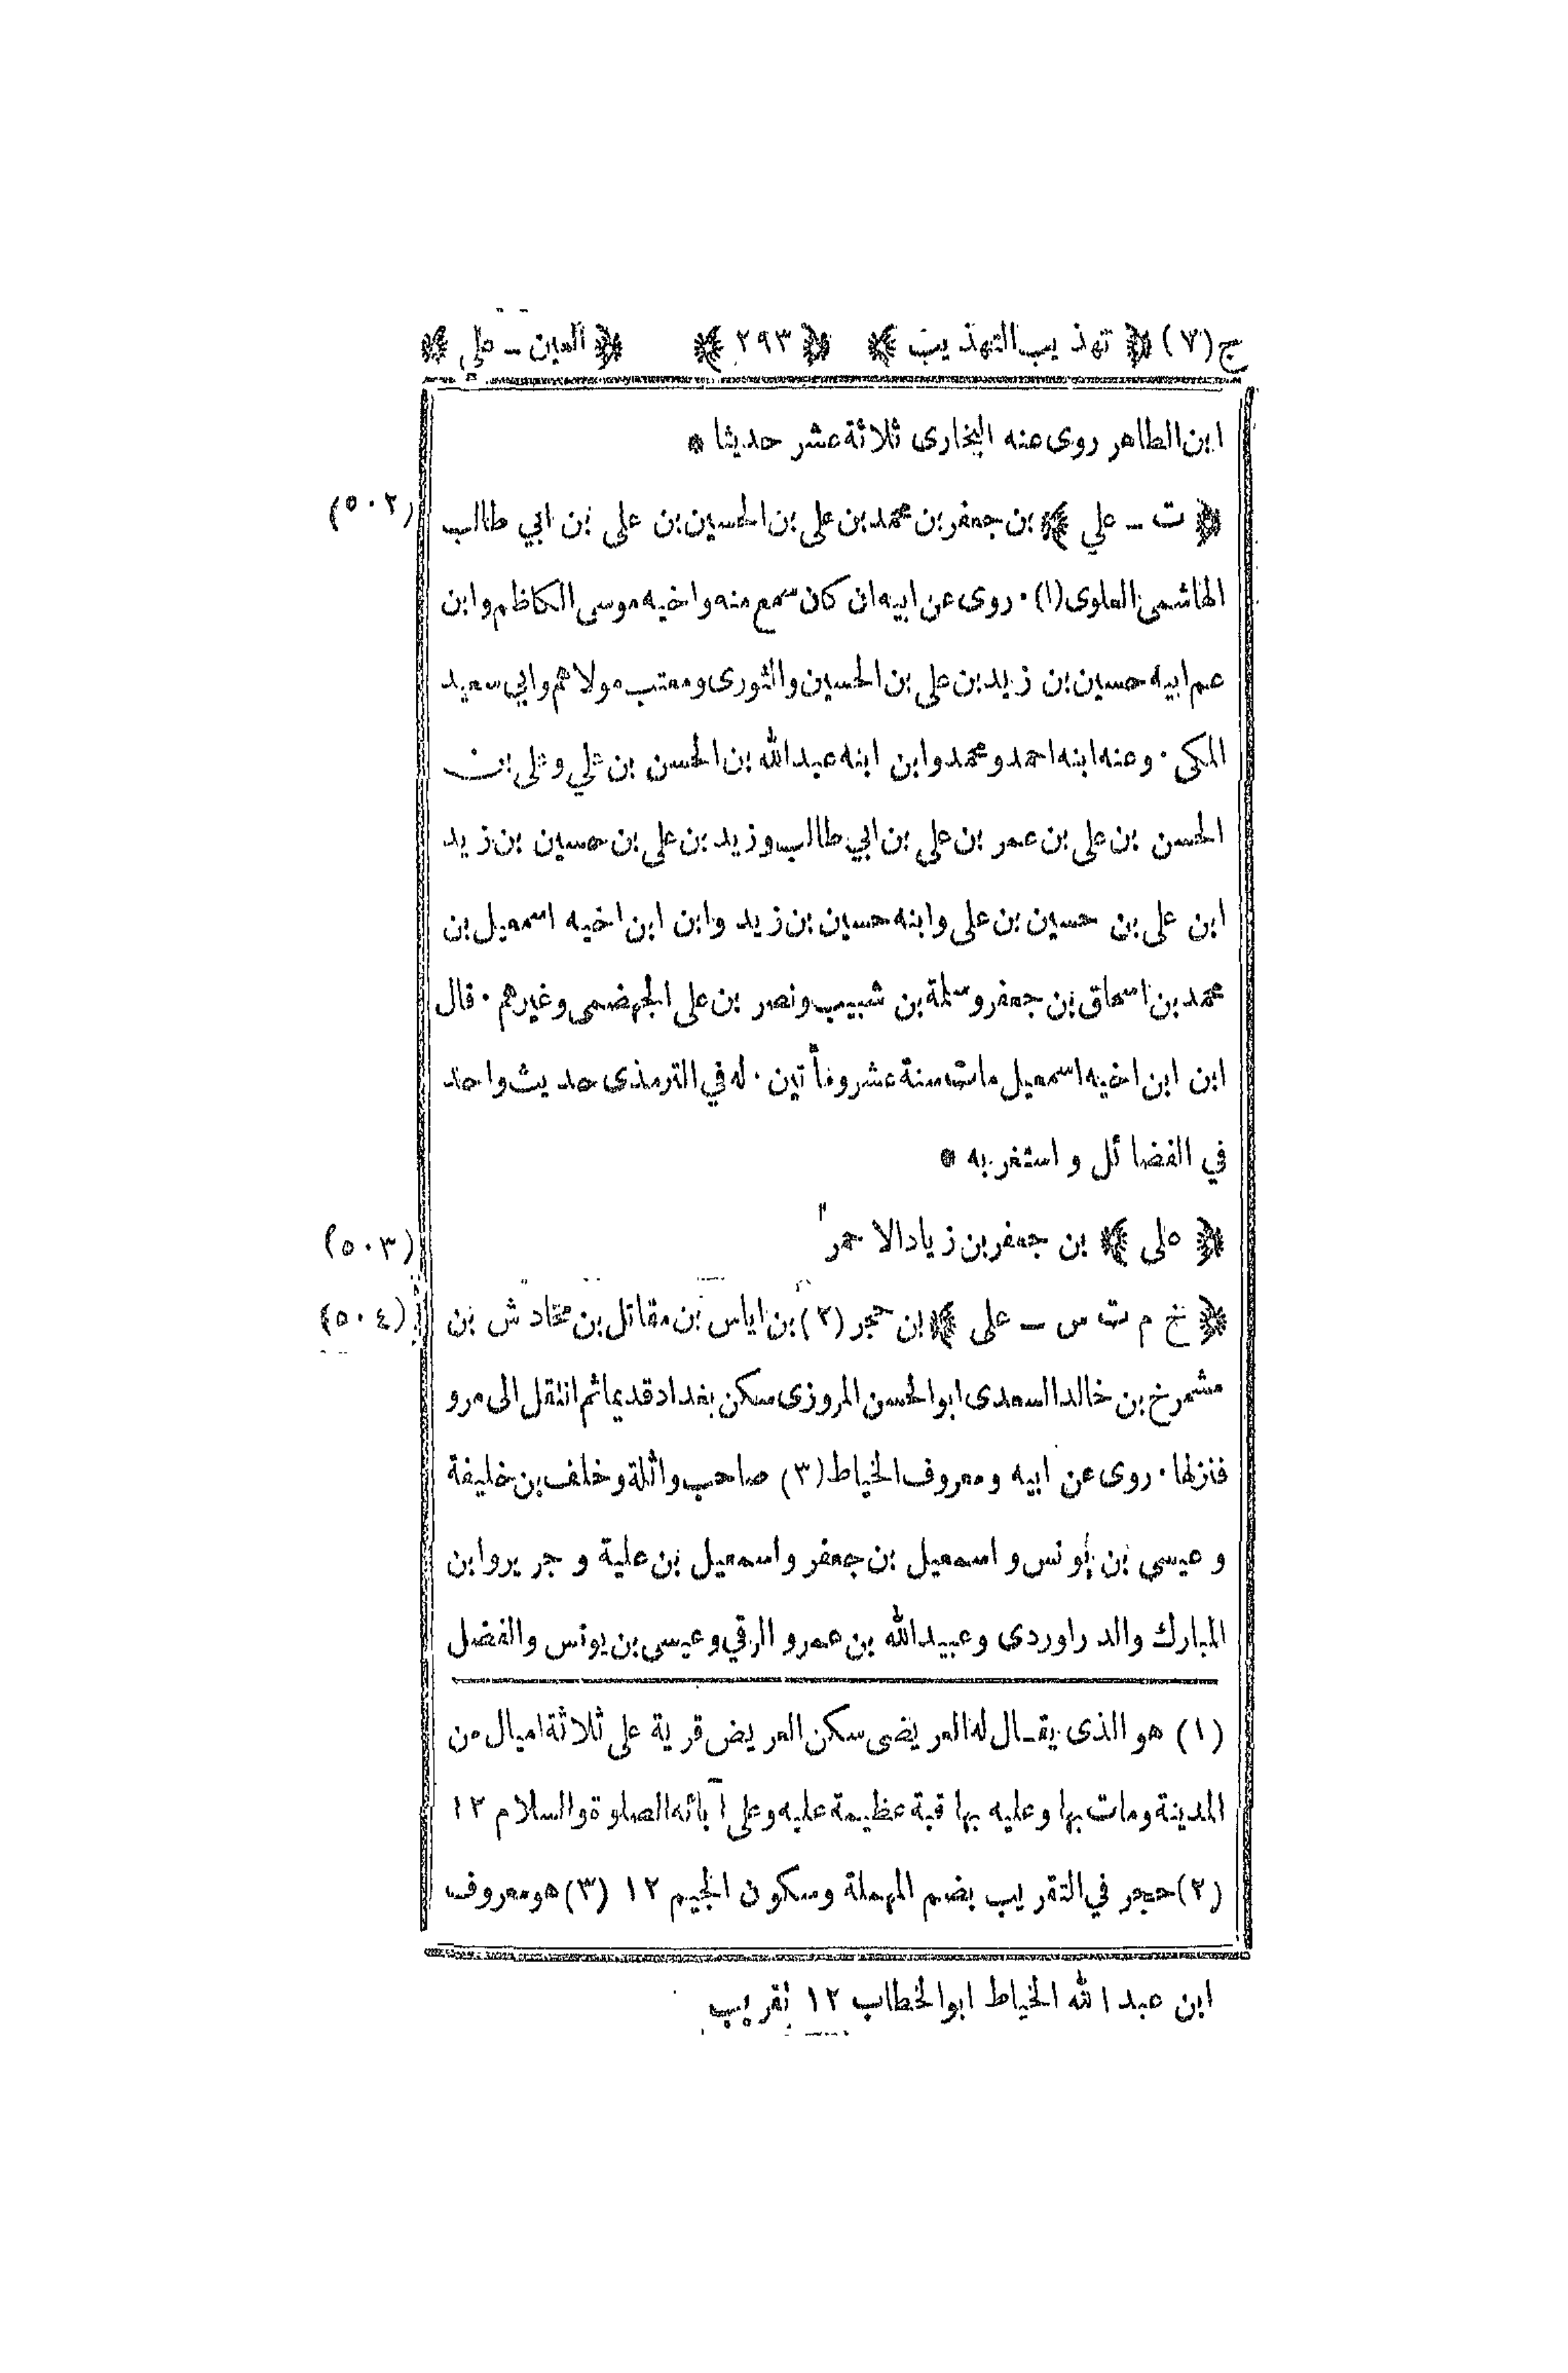 ج(٧) ﴿ تهذيب التهذيب ﴾ ﴿ ٢٩٣ ﴾ ﴿ العين ـ على ﴾
ابن الطاهر روى عنه البخارى ثلاثة عشر حديثا *
﴿ ت ـ علي ﴾ بن جعفر بن محمد بن على بن الحسين بن على بن ابي طالب (٥٠٢)
الهاشمى العلوى (١) . روى عن ابيه ان كان سمع منه واخيه موسى الكاظم وابن
عم ابيه حسين بن زيد بن على بن الحسين والثورى ومعتب مولاهم وابي سعيد
المكى . وعنه ابنه احمد ومحمد وابن ابنه عبد الله بن الحسن بن علي وعلى بن
الحسن بن على بن عمر بن على بن ابي طالب وزيد بن على بن حسين بن زيد
ابن على بن حسين بن على وابنه حسين بن زيد وابن ابن اخيه اسمعيل بن
محمد بن اسحاق بن جعفر وسلمة بن شبيب ونصر بن على الجهضمى وغيرهم . قال
ابن ابن اخيه اسمعيل مات سنة عشر ومأتين . له في الترمذى حديث واحد
في الفضائل و استغربه *
﴿ على ﴾ بن جعفر بن زياد الاحمر (٥٠٣)
﴿ خ م ت س ـ على ﴾ بن حجر (٢) بن اياس بن مقاتل بن مخادش بن (٥٠٤)
مشمرخ بن خالد السعدى ابو الحسن المروزى سكن بغداد قديما ثم انتقل الى مرو
فنزلها . روى عن ابيه ومعروف الخياط (٣) صاحب واثلة وخلف بن خليفة
و عيسى بن يونس و اسمعيل بن جعفر واسمعيل بن علية و جرير وابن
المبارك والدراوردى وعبيد الله بن عمرو الرقي وعيسى بن يونس والفضل
(١) هو الذى يقال له العريضى سكن العريض قرية على ثلاثة اميال من
المدينة ومات بها وعليه بها قبة عظيمة عليه وعلى آبائه الصلوة والسلام ١٢
(٢) حجر في التقريب بضم المهملة وسكون الجيم ١٢ (٣) هو معروف
ابن عبد الله الخياط ابو الخطاب ١٢ تقريب